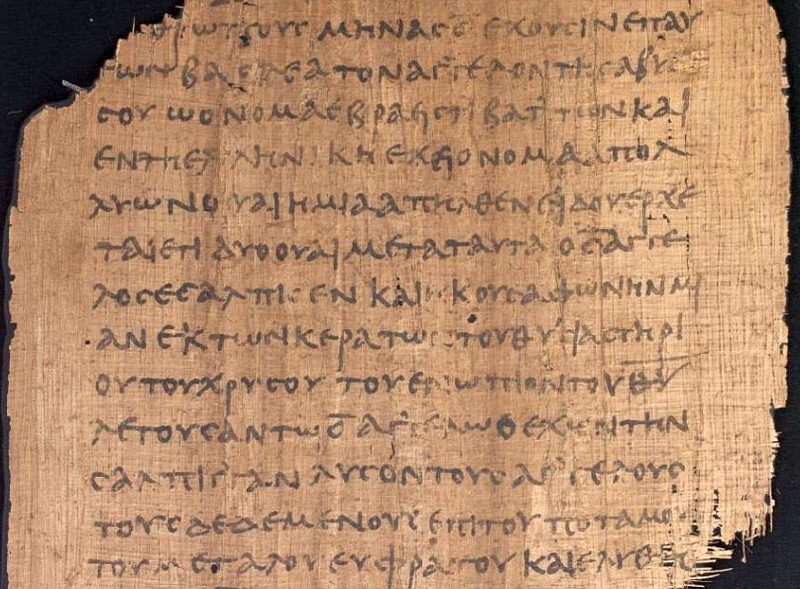 ΜΗΝΑϹ Ε ΕΧΟΥϹΙΝ ΕΠ ΑΥ
ΤΩΝ ΒΑϹΙΛΕΑ ΤΟΝ ΑΓΓΕΛΟΝ ΤΗϹ ΑΒΥϹ
ϹΟΥ Ω ΟΝΟΜΑ ΕΒΡΑΗϹΤΙ ΒΑΤΤΩΝ ΚΑΙ
ΕΝ ΤΗ ΕΛΛΗΝΙΚΗ ΕΧΕΙ ΟΝΟΜΑ ΑΠΟΛ
ΛΥΩΝ ΟΥΑΙ Η ΜΙΑ ΑΠΗΛΘΕΝ ΙΔΟΥ ΕΡΧΕ
ΤΑΙ ΕΤΙ ΔΥΟ ΟΥΑΙ ΜΕΤΑ ΤΑΥΤΑ Ο Ϛ̅ ΑΓΓΕ
ΛΟϹ ΕϹΑΛΠΙϹΕΝ ΚΑΙ ΗΚΟΥϹΑ ΦΩΝΗΝ ΜΙ
ΑΝ ΕΚ ΤΩΝ ΚΕΡΑΤΩΝ ΤΟΥ ΘΥϹΙΑϹΤΗΡΙ
ΟΥ ΤΟΥ ΧΡΥϹΟΥ ΤΟΥ ΕΝΩΠΙΟΝ ΤΟΥ Θ̅Υ̅
ΛΕΓΟΥϹΑΝ ΤΩ Ϛ̅ ΑΓΓΕΛΩ Ο ΕΧΩΝ ΤΗΝ
ϹΑΛΠΙΓΓΑΝ ΛΥϹΟΝ ΤΟΥϹ ΑΓΓΕΛΟΥϹ
ΤΟΥϹ ΔΕΔΕΜΕΝΟΥϹ ΕΠΙ ΤΟΥ ΠΟΤΑΜΟΥ
ΤΟΥ ΜΕΓΑΛΟΥ ΕΥΦΡΑΤΟΥ ΚΑΙ